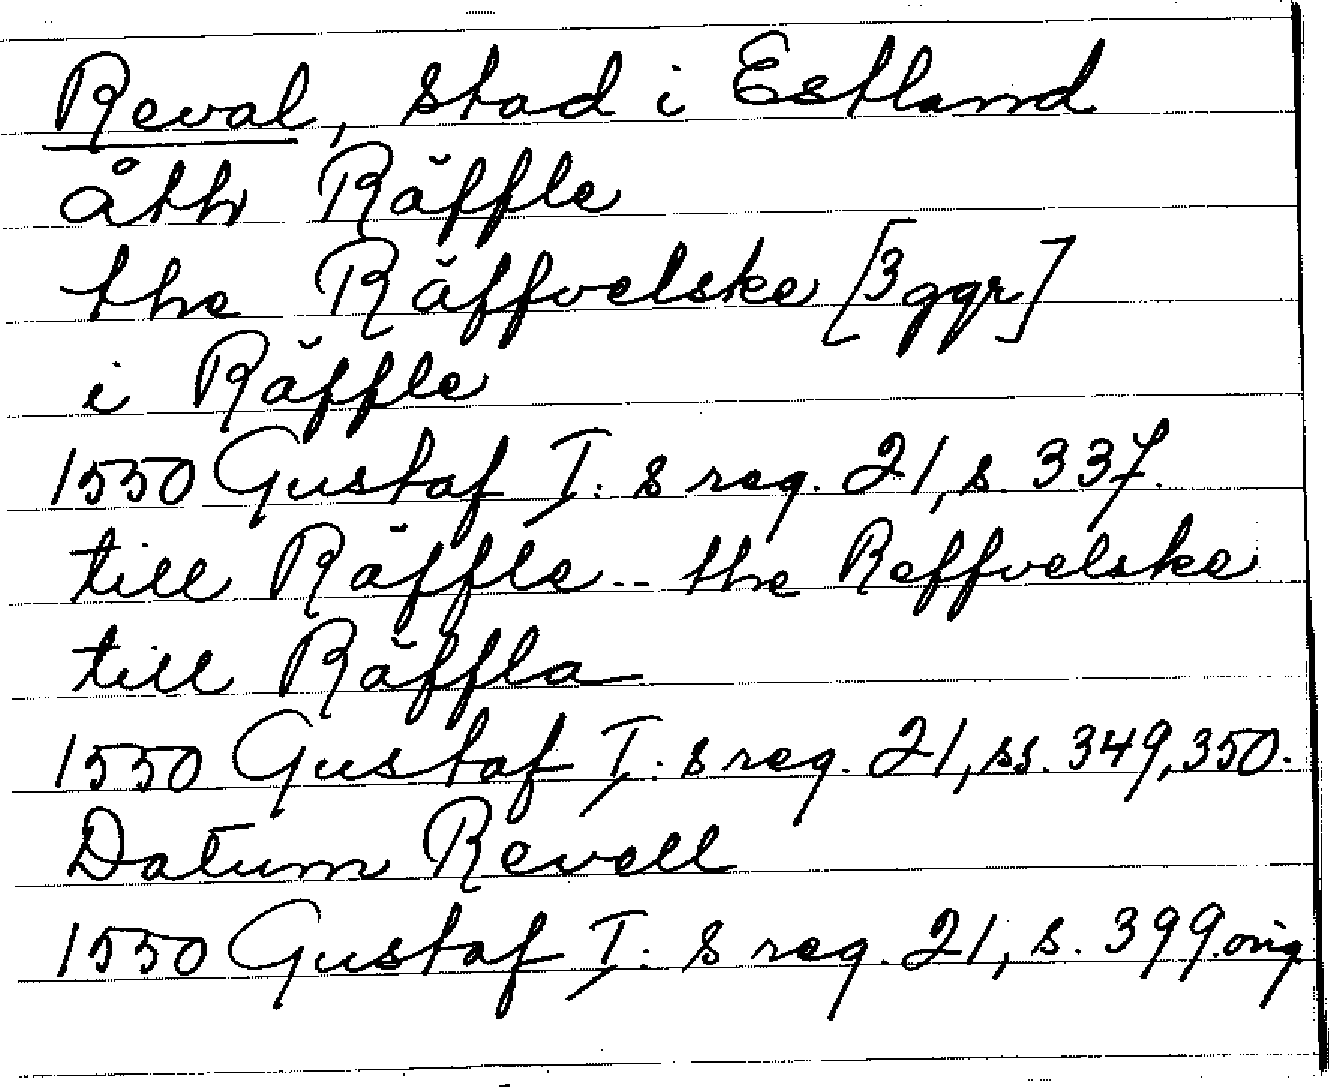 Reval, stad i Estland
åth Räffle
the Räffvelske [3 ggr]
i Räffle
1550 Gustaf I:s reg. 21, s. 337.
till Räffle -- the Reffvelske
till Räffla
1550 Gustaf I:s reg. 21, ss. 349, 350.
Datum Revell
1550 Gustaf I:s reg. 21, s. 399. orig.